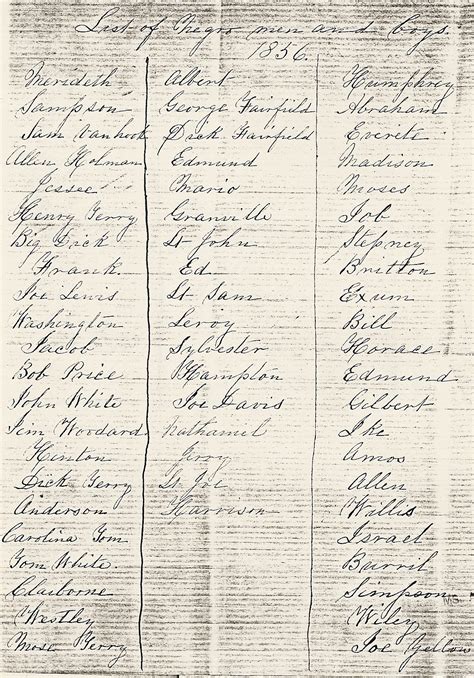 List of Negro men and boys.
1856.
Merideth
Sampson
Sam Vanhook
Allen Holman
Jessee
Henry Terry
Big Dick
Frank.
Joe Lewis
Washington
Jacob
Bob Price
John White
Jem Woodard
Hinton
Dick Terry
Anderson
Carolina Tom
Tom White.
Claiborne
Westley
Mose Terry
Albert
George Fairfield
Dick Fairfield
Edmund
Mario
Granville
Lt John
Ed
Lt Sam
Leroy
Sylvester
Hampton
Joe Davis
Nathaniel
Lt Joe
Harrison
Humphrey
Abraham
Everete
Madison
Moses
Job
Stepney
Britton
Exum
Bill
Horace
Edmund
Gilbert
Ike
Amos
Allen
Willis
Israel
Burril
Simpson
Wiley
Joe Yellow